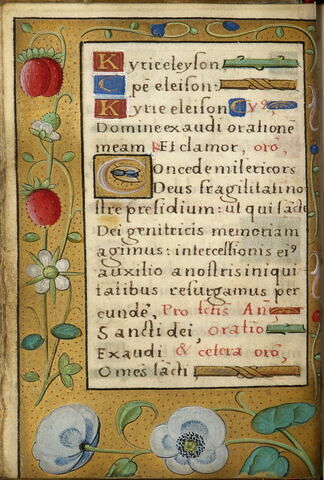 Kyrie leyson
Xpē eleison
Kyrie eleison xpꝰ,
Domine exaudi orationē
meam Et clamor, orō,
Concede misericors
Deus fragilitati no
stre presidium: ut qui sācte
Dei genitricis memoriam
agimus: intercessionis eiꝰ
auxilio a nostris iniqui
tatibus resurgamus per
eundē, Pro totis An,
Sancti dei, oratio
Exaudi & cetera orō,
Omēs sācti